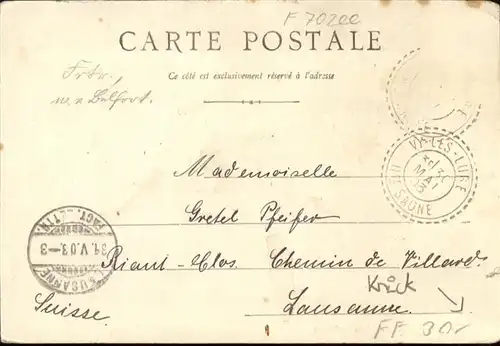 F 702ee
CARTE POSTALE
Ce côté est exclusivement réservé à l'adresse
Belfort.
VY-LES-LURE
31
MAI
03
HTE SAONE
Mademoiselle
Gretel Pfeifer
Riant-Clos. Chemin de Villard
Krück
Lausanne.
Suisse.
FF. 30.-
LAUSANNE
31.V.03.-3
FACT. LETTR.